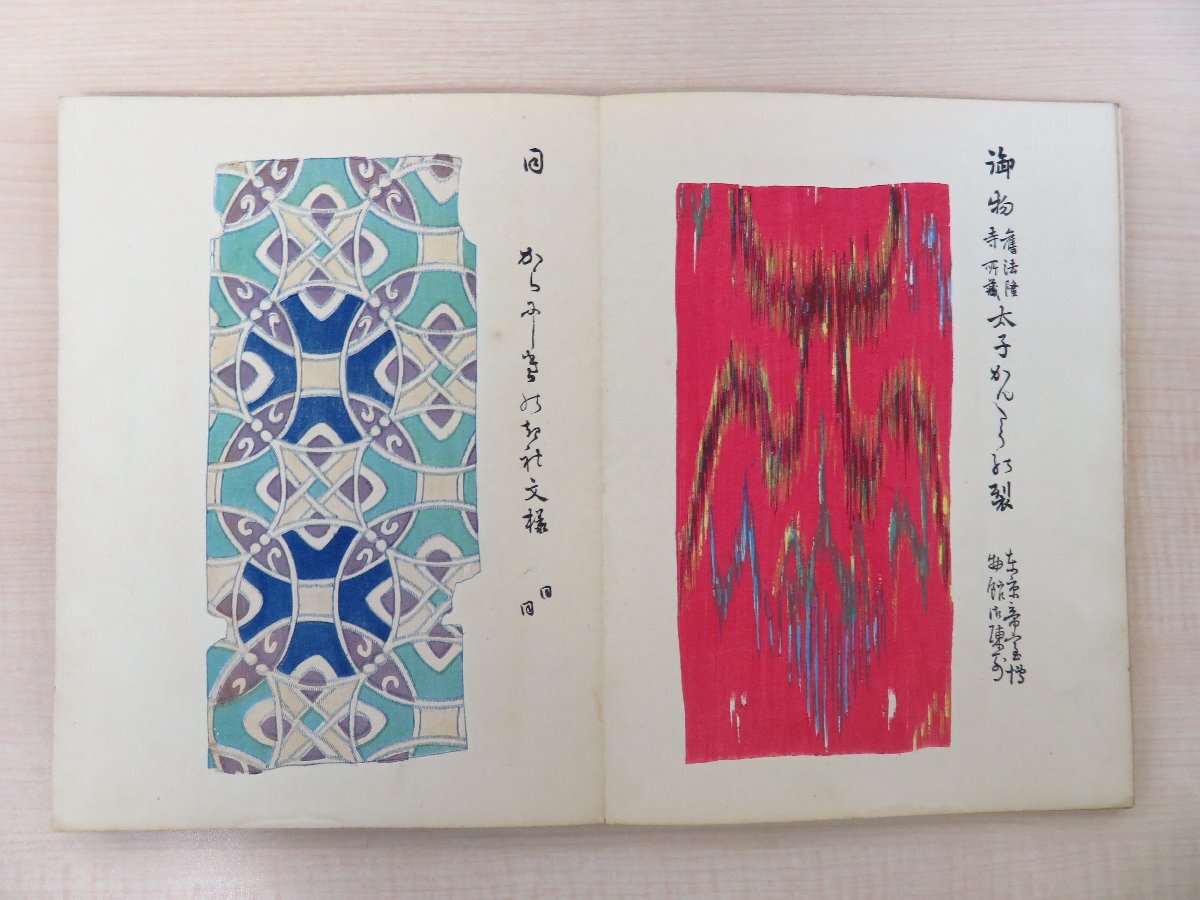 御物 舊法隆寺所藏 太子かんとうの裂
東京帝室博
物館御陳列
同 からにしき
文様
同
同